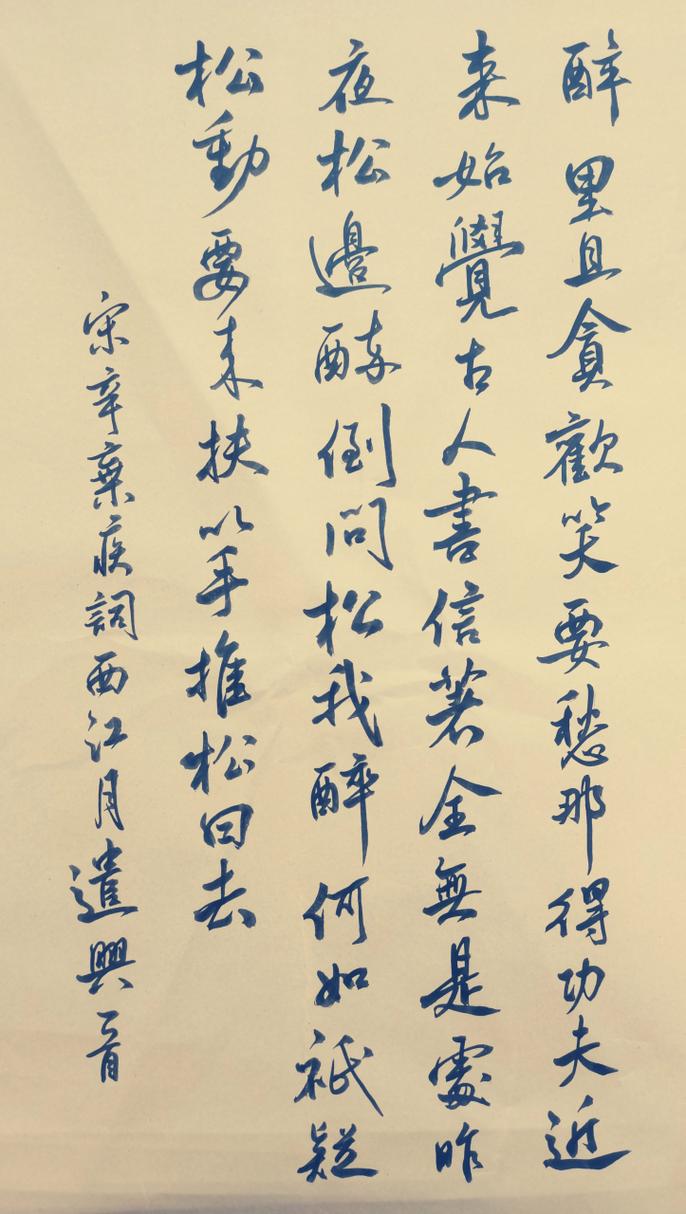 醉里且貪歡笑要愁那得功夫近
來始覺古人書信著全無是處昨
夜松邊醉倒問松我醉何如祇疑
松動要來扶以手推松曰去
宋辛棄疾詞西江月遣興一首